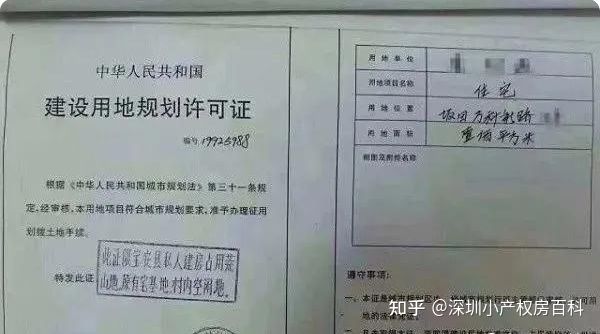 中华人民共和国
建设用地规划许可证
编号 19925988
根据《中华人民共和国城市规划法》第三十一条规
定,经审核,本用地项目符合城市规划要求,准予办理征用
划拨土地手续。
特发此证
此证限宝安县私人建房占用荒
山地、原有宅基地、村内空闲地。
用地单位
用地项目名称
住宅
用地位置
坂田万科
用地面积
壹佰平方米
附图及附件名称
遵守事项:
一、本证是城市规划区内
知乎 @深圳小产权房百科